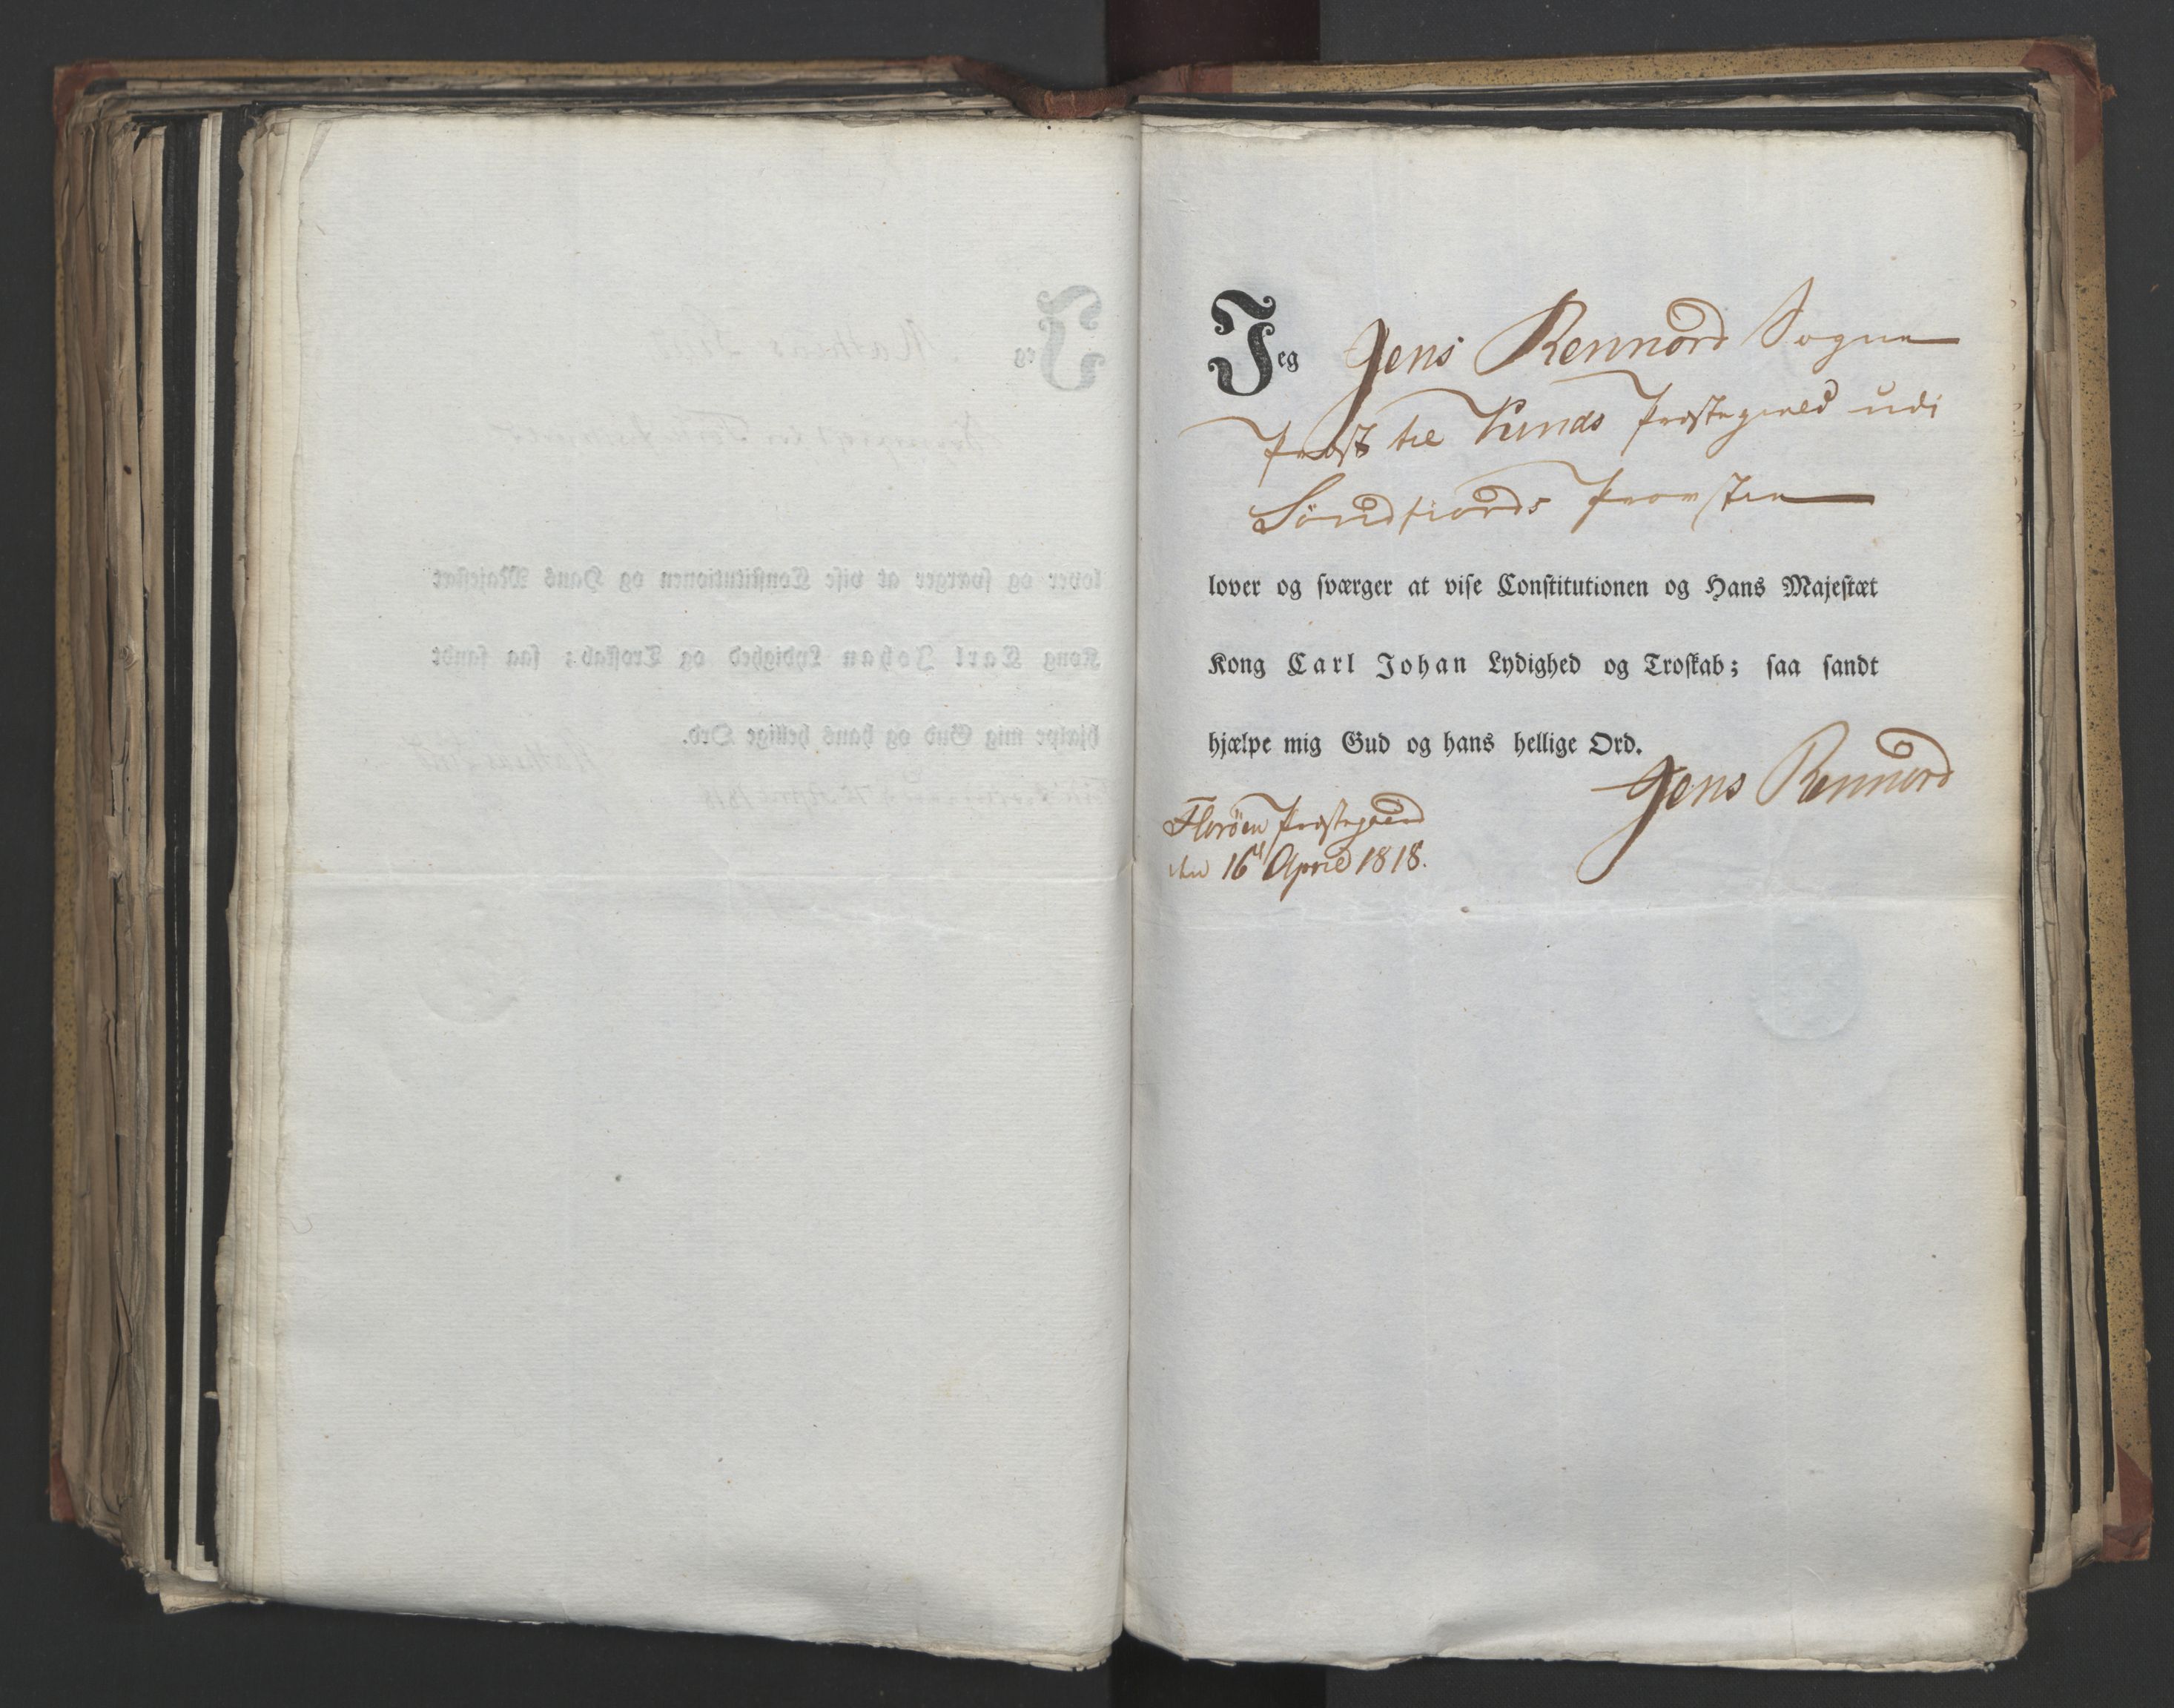 Jeg Jens Rennord Sogne
Præst til Kinds Præstegield udi
Söndfiords Provstie
lover og sværger at vise Constitutionen og Hans Majestæt
Kong Carl Johan Lydighed og Troskab; saa sandt
hjælpe mig Gud og hans hellige Ord.
Jens Rennord
Floröen Præstegaard
den 16 April 1818.